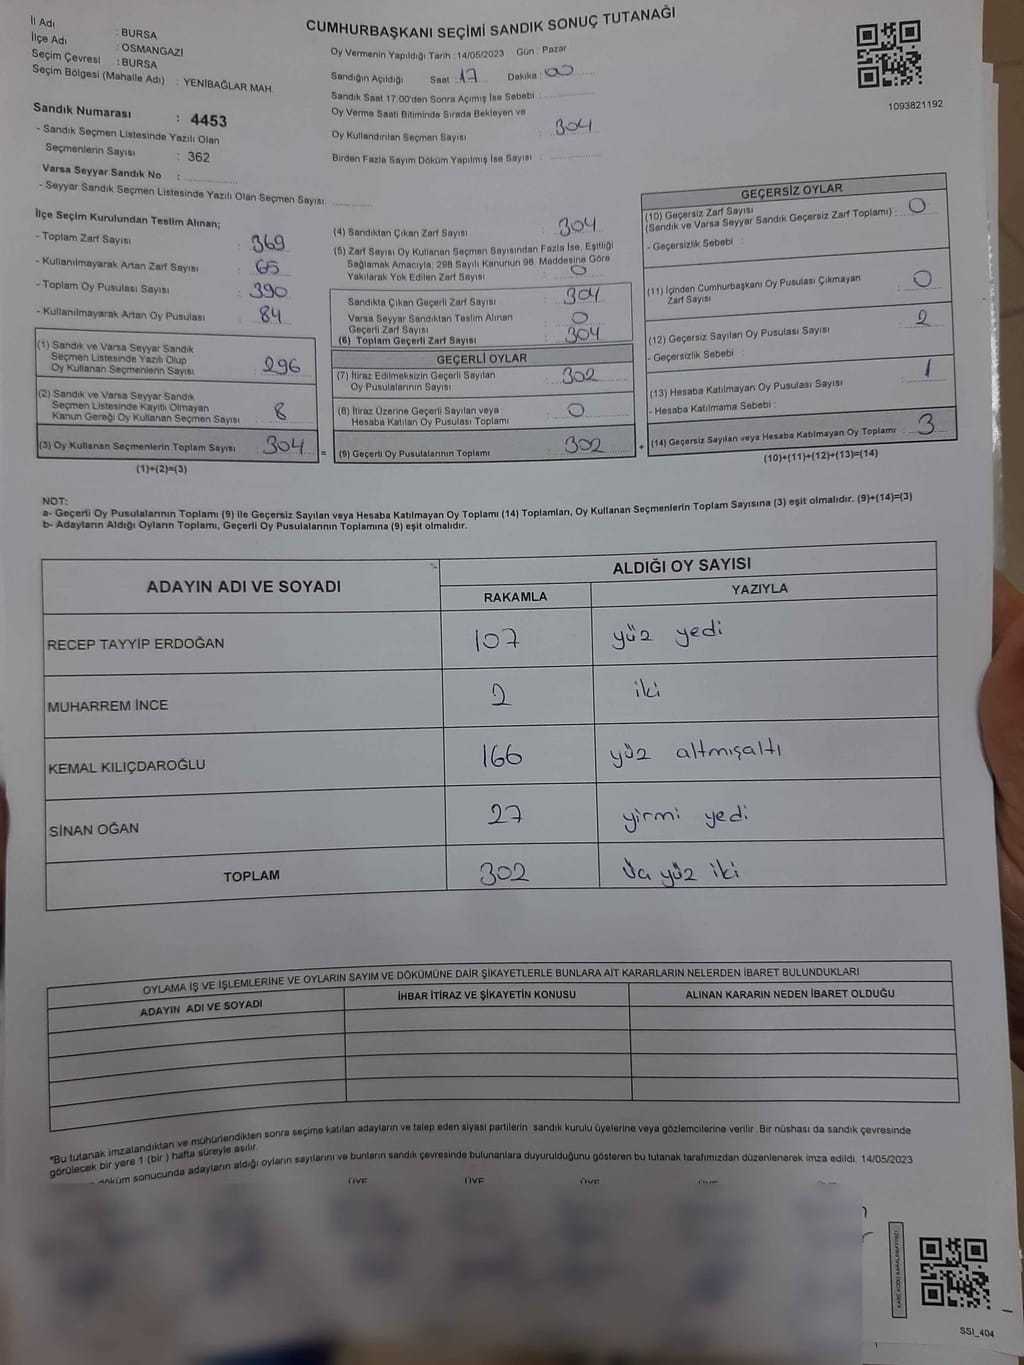 CUMHURBAŞKANI SEÇİMİ SANDIK SONUÇ TUTANAĞI
İl Adı : BURSA
İlçe Adı : OSMANGAZİ
Seçim Çevresi : BURSA
Seçim Bölgesi (Mahalle Adı) : YENİBAĞLAR MAH.
Sandık Numarası : 4453
- Sandık Seçmen Listesinde Yazılı Olan
Seçmenlerin Sayısı : 362
Varsa Seyyar Sandık No :
- Seyyar Sandık Seçmen Listesinde Yazılı Olan Seçmen Sayısı:
Oy Vermenin Yapıldığı Tarih : 14/05/2023 Gün : Pazar
Sandığın Açıldığı Saat : 17 Dakika : 00
Sandık Saat 17:00'den Sonra Açımış İse Sebebi :
Oy Verme Saati Bitiminde Sırada Bekleyen ve
Oy Kullandırılan Seçmen Sayısı : 304
Birden Fazla Sayım Döküm Yapılmış İse Sayısı :
1093821192
İlçe Seçim Kurulundan Teslim Alınan;
- Toplam Zarf Sayısı : 369
- Kullanılmayarak Artan Zarf Sayısı : 65
- Toplam Oy Pusulası Sayısı : 390
- Kullanılmayarak Artan Oy Pusulası : 84
(1) Sandık ve Varsa Seyyar Sandık
Seçmen Listesinde Yazılı Olup
Oy Kullanan Seçmenlerin Sayısı : 296
(2) Sandık ve Varsa Seyyar Sandık
Seçmen Listesinde Kayıtlı Olmayan
Kanun Gereği Oy Kullanan Seçmen Sayısı : 8
(3) Oy Kullanan Seçmenlerin Toplam Sayısı : 304 =
(1)+(2)=(3)
(4) Sandıktan Çıkan Zarf Sayısı : 304
(5) Zarf Sayısı Oy Kullanan Seçmen Sayısından Fazla İse, Eşitliği
Sağlamak Amacıyla, 298 Sayılı Kanunun 98. Maddesine Göre
Yakılarak Yok Edilen Zarf Sayısı : 0
Sandıkta Çıkan Geçerli Zarf Sayısı : 304
Varsa Seyyar Sandıktan Teslim Alınan
Geçerli Zarf Sayısı : 0
(6) Toplam Geçerli Zarf Sayısı : 304
GEÇERLİ OYLAR
(7) İtiraz Edilmeksizin Geçerli Sayılan
Oy Pusulalarının Sayısı : 302
(8) İtiraz Üzerine Geçerli Sayılan veya
Hesaba Katılan Oy Pusulası Toplamı : 0
(9) Geçerli Oy Pusulalarının Toplamı : 302 +
GEÇERSİZ OYLAR
(10) Geçersiz Zarf Sayısı
(Sandık ve Varsa Seyyar Sandık Geçersiz Zarf Toplamı) : 0
- Geçersizlik Sebebi :
(11) İçinden Cumhurbaşkanı Oy Pusulası Çıkmayan
Zarf Sayısı : 0
(12) Geçersiz Sayılan Oy Pusulası Sayısı : 2
- Geçersizlik Sebebi :
(13) Hesaba Katılmayan Oy Pusulası Sayısı : 1
- Hesaba Katılmama Sebebi :
(14) Geçersiz Sayılan veya Hesaba Katılmayan Oy Toplamı : 3
(10)+(11)+(12)+(13)=(14)
NOT:
a- Geçerli Oy Pusulalarının Toplamı (9) ile Geçersiz Sayılan veya Hesaba Katılmayan Oy Toplamı (14) Toplamları, Oy Kullanan Seçmenlerin Toplam Sayısına (3) eşit olmalıdır. (9)+(14)=(3)
b- Adayların Aldığı Oyların Toplamı, Geçerli Oy Pusulalarının Toplamına (9) eşit olmalıdır.
ADAYIN ADI VE SOYADI ALDIĞI OY SAYISI
RAKAMLA YAZIYLA
RECEP TAYYİP ERDOĞAN 107 yüz yedi
MUHARREM İNCE 2 iki
KEMAL KILIÇDAROĞLU 166 yüz altmışaltı
SİNAN OĞAN 27 yirmi yedi
TOPLAM 302 yüz iki
OYLAMA İŞ VE İŞLEMLERİNE VE OYLARIN SAYIM VE DÖKÜMÜNE DAİR ŞİKAYETLERLE BUNLARA AİT KARARLARIN NELERDEN İBARET BULUNDUKLARI
ADAYIN ADI VE SOYADI İHBAR İTİRAZ VE ŞİKAYETİN KONUSU ALINAN KARARIN NEDEN İBARET OLDUĞU
*Bu tutanak imzalandıktan ve mühürlendikten sonra seçime katılan adayların ve talep eden siyasi partilerin sandık kurulu üyelerine veya gözlemcilerine verilir. Bir nüshası da sandık çevresinde
görülecek bir yere 1 (bir ) hafta süreyle asılır.
döküm sonucunda adayların aldığı oyların sayılarını ve bunların sandık çevresinde bulunanlara duyurulduğunu gösteren bu tutanak tarafımızdan düzenlenerek imza edildi. 14/05/2023
ÜYE ÜYE ÜYE ÜYE
SSI_404